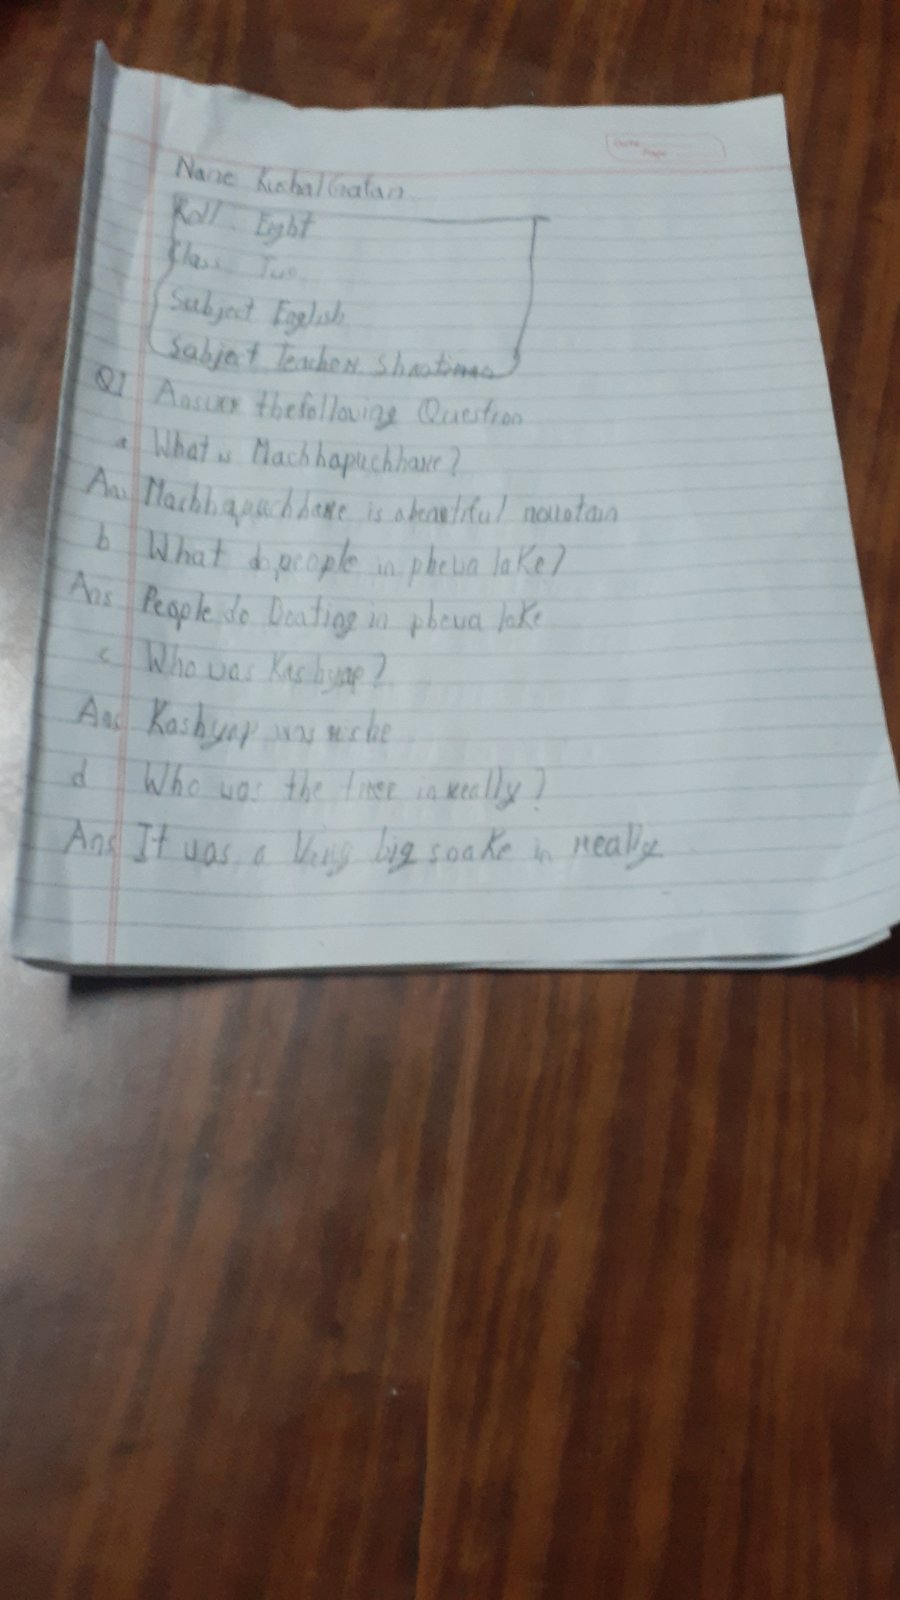 Name Kushal Gratan
Roll Eight
Class Two
Subject English
Subject Teacher
Q1 Answer the following Question
a What is Machhapuchhare?
Ans Machhapuchhare is a beautiful mountain
b What do people in phewa lake?
Ans People do Boating in phewa lake
c Who was Kashyap?
Ans Kashyap was
d Who was the tree in really?
Ans It was a Very big snake in really